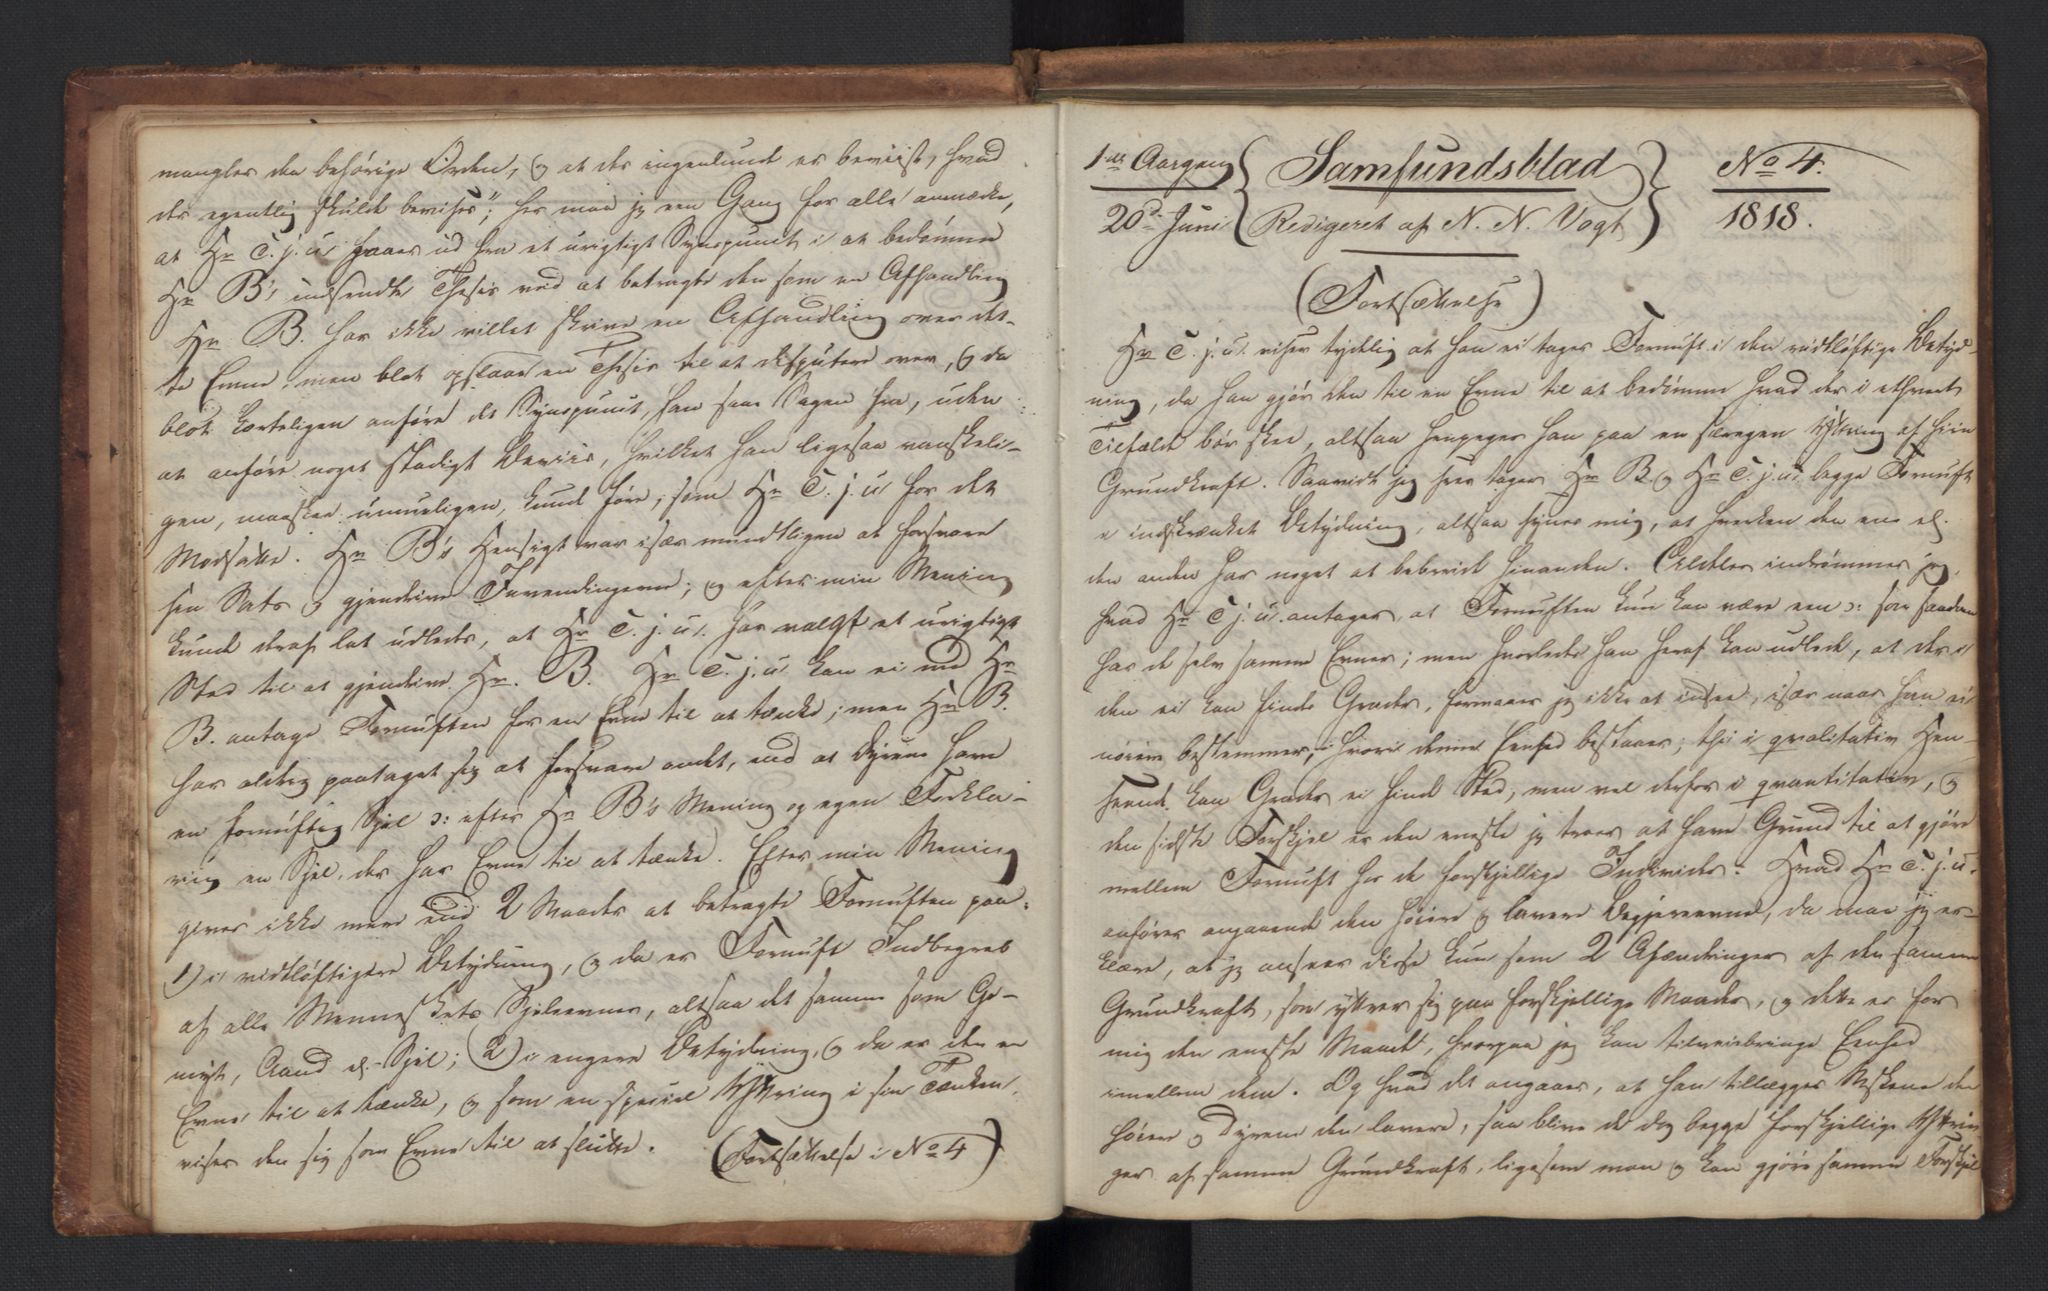 mangler den behörige Orden, og at der ingenlunde er beviist, hvad
der egentlig skulde bevises"; her maa jeg een Gang for alle anmærke,
at Hr C. j. u. gaaer ud fra et urigtigt Synspunct i at bedömme
Hr B's indsendte Thesis ved at betragte den som en Afhandling
Hr B. har ikke villet skrive en Afhandling over det-
te Emne, men blot opslaae en Thesis til at disputere over, og da
blot korteligen anföre det Synspunct, han saae Sagen fra, uden
at anföre noget stadigt Beviis, hvilket han ligesaa vanskeli-
gen, maaskee umueligen, kunde före, som Hr C. j. u. for det
Modsatte. Hr B's Hensigt var især mundtligen at forsvare
sin Sats og gjendrive Invendingerne; og efter min Mening
kunde deraf let udledes, at Hr C. j. u. har valgt et urigtigt
Sted til at gjendrive Hr. B. Hr C. j. u. kan ei med Hr
B. antage Fornuften for en Evne til at tænke; men Hr B.
har aldrig paataget sig at forsvare andet, end at Dyrene have
en fornuftig Sjel ɔ: efter Hr B's Mening og egen Forkla-
ring en Sjel, der har Evne til at tænke. Efter min Mening
gives ikke mere end 2 Maader at betragte Fornuften paa:
1) i vidtløftigere Betydning, og da er Fornuft Indbegreb
af alle Menneskets Sjeleevner, altsaa det samme som Ge-
myt, Aand el. Sjel; 2) i engere Betydning, og da er den en
Evne til at tænke, og som en speciel Yttring i sin Tænken,
viser den sig som Evne til at slutte. (Fortsættelse i No 4)
1ste Aargang
20de Juni
Samfundsblad
Redigeret af N. N. Vogt
No 4.
1818.
(Fortsættelse)
Hr C. j. u. viser tydelig at han ei tager Fornuft i den vidtløftige Betyd-
ning, da han gjör den til en Evne til at bedömme hvad der i ethvert
Tilfælde bör skee, altsaa henpeger han paa en særegen Yttring af hiin
Grundkraft. Saavidt jeg seer tager Hr B. og Hr C. j. u. begge Fornuft
i indskrænket Betydning, altsaa synes mig, at hverken den ene el.
den anden har noget at bebreide hinanden. Aldeles indrömmer jeg,
hvad Hr C j. u. antager, at Fornuften kun kan være een ɔ: som saadan
har de selv samme Evner; men hvorledes han heraf kan udlede, at der i
den ei kan finde Grader, formaaer jeg ikke at indsee, især naar han ei
nöiere bestemmer, hvori denne Eenhed bestaaer; thi i qvalitativ Hen-
seende kan Grader ei finde Sted, men vel derfor i qvantitativ, og
den sidste Forskjel er den eneste jeg troer at have Grund til at gjöre
mellem Fornuft hos de forskjellige Individer. Hvad Hr C. j. u.
anförer angaaende den höiere og lavere Begjereevne, da maa jeg er-
klære, at jeg anseer disse kun som 2 Afændringer af den samme
Grundkraft, som yttrer sig paa forskjellige Maader, og dette er for
mig den eneste Maade, hvorpaa jeg kan tilveiebringe Eenhed
imellem dem. Og hvad det angaaer, at han tillægger Mskene den
höiere og Dyrene den lavere, saa blive de dog begge forskjellige Yttrin
ger af samme Grundkraft, ligesom man og kan gjöre samme Forskjel